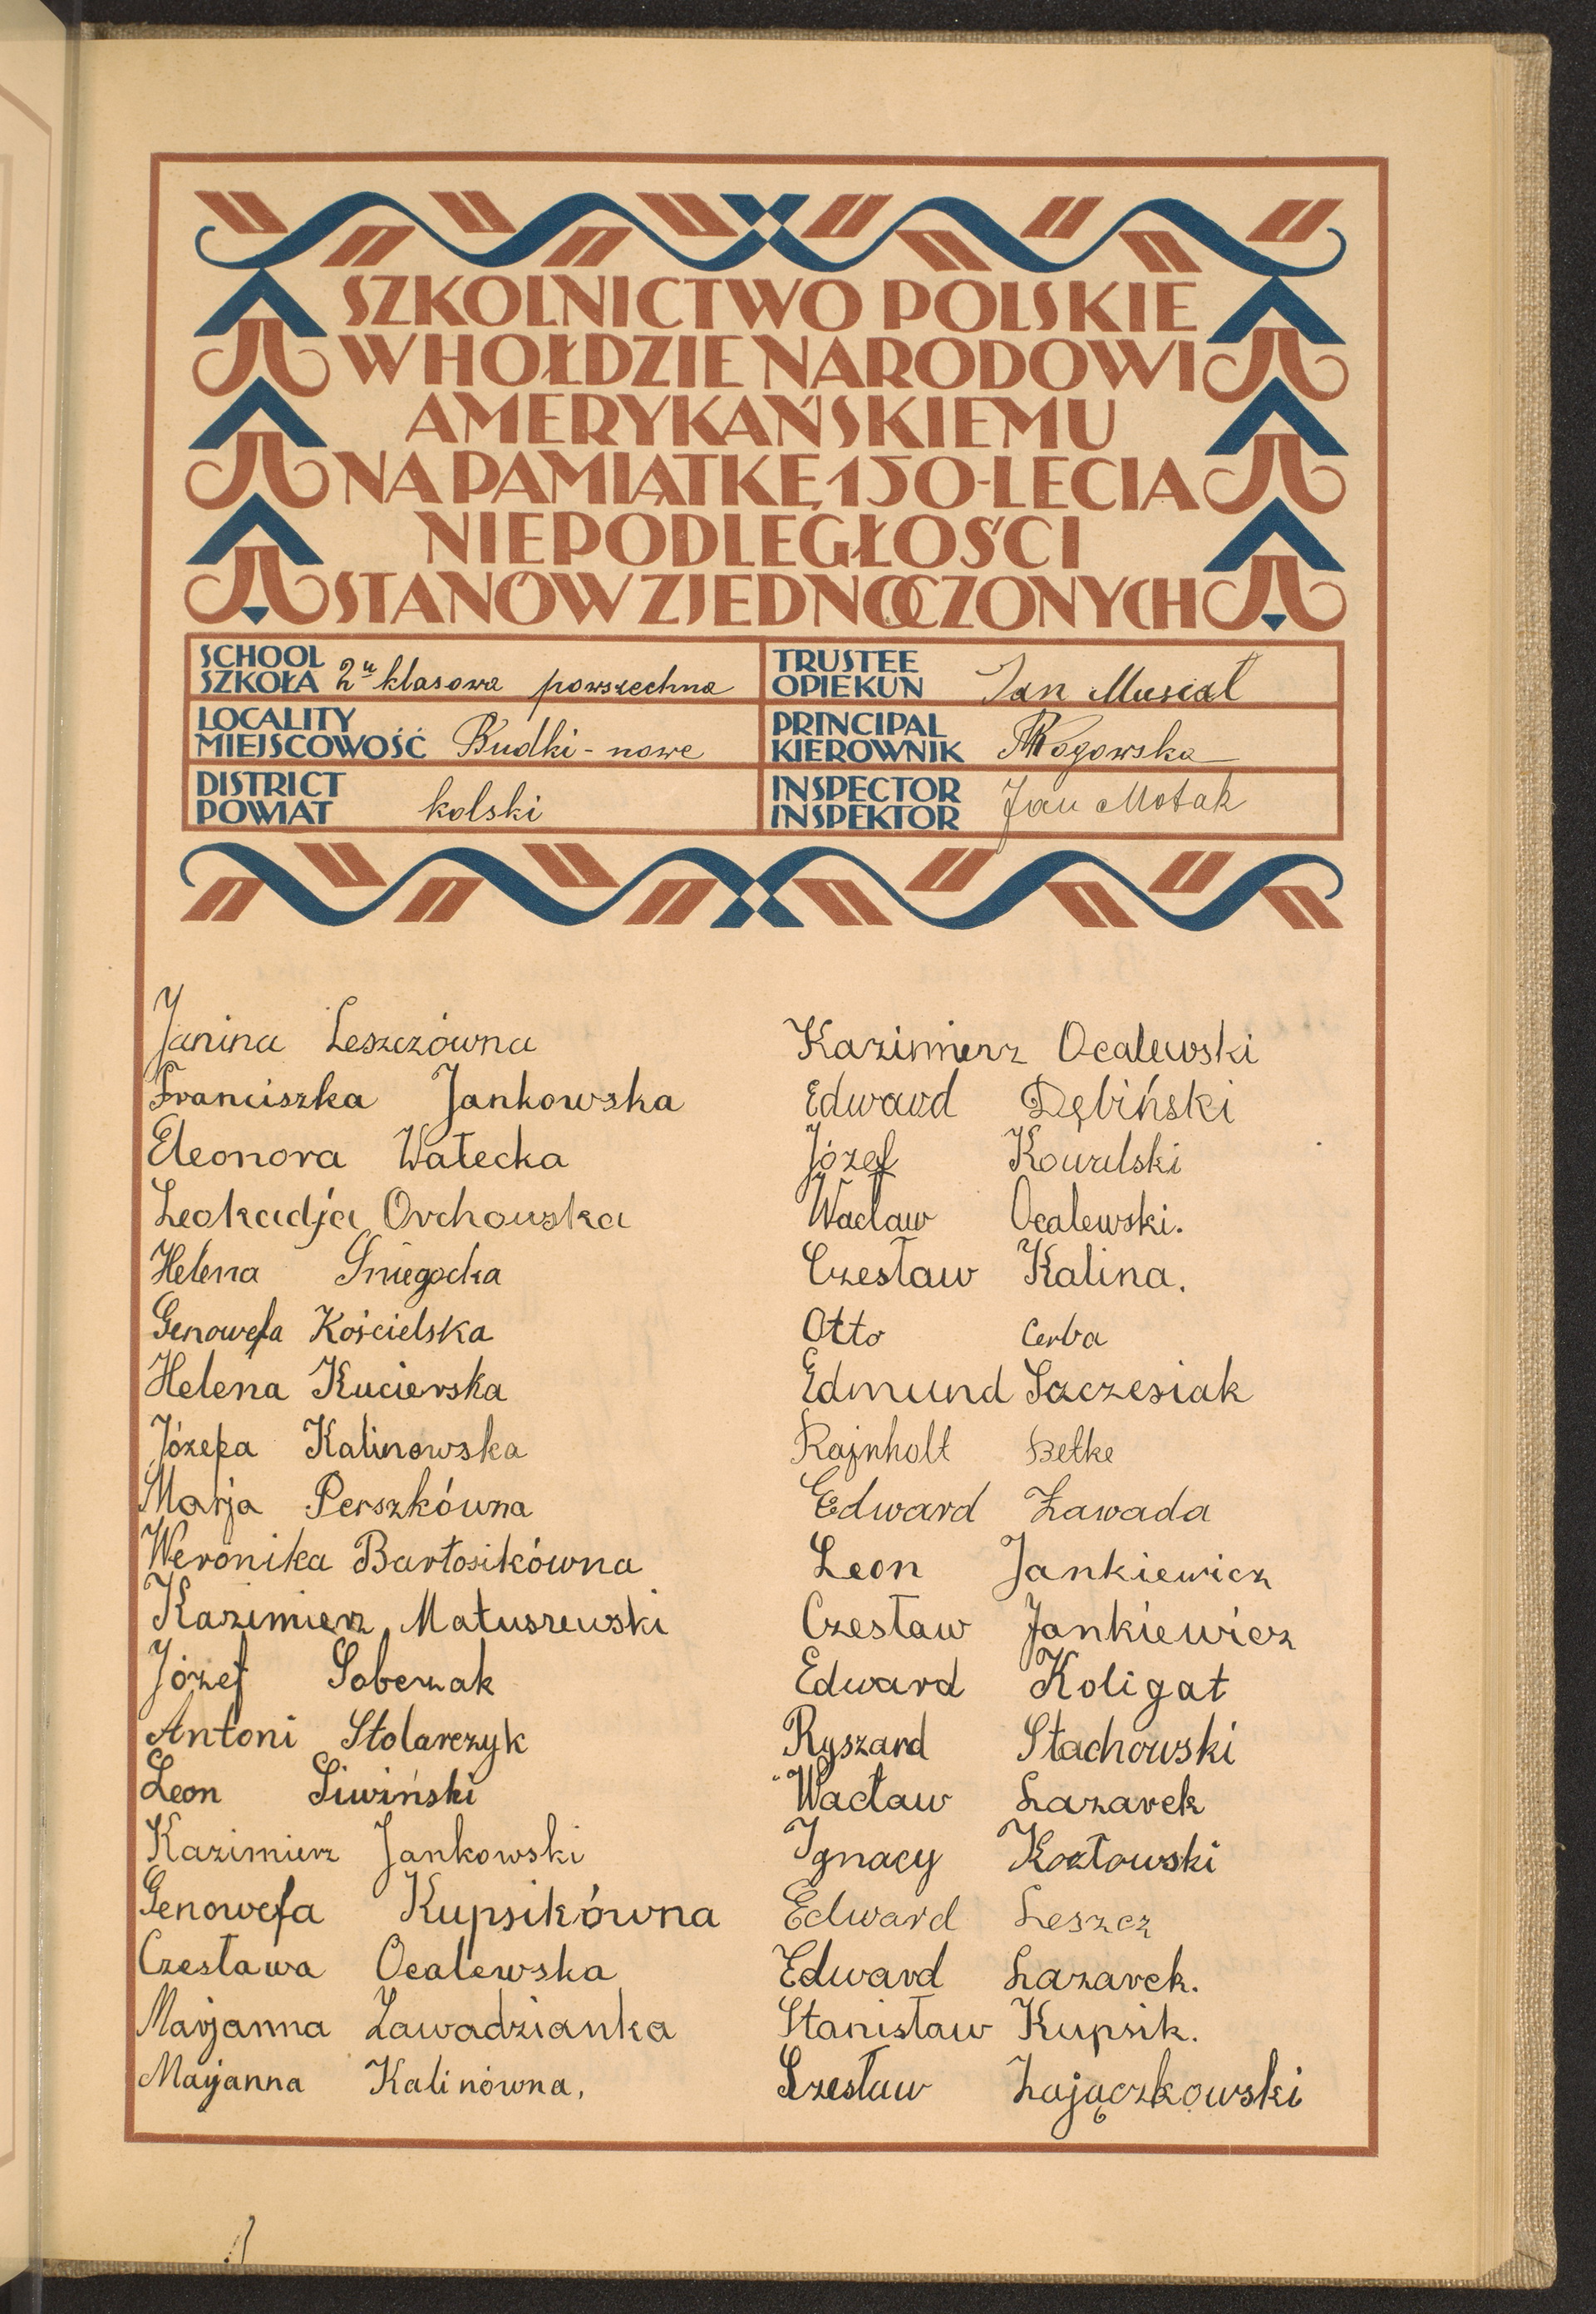 SZKOLNICTWO POLSKIE
W HOŁDZIE NARODOWI
AMERYKAŃSKIEMU
NA PAMIĄTKĘ 150-LECIA
NIEPODLEGŁOŚCI
STANÓW ZJEDNOCZONYCH
SCHOOL
SZKOŁA 2u klasowa powszechna
TRUSTEE
OPIEKUN Jan Musiał
LOCALITY
MIEJSCOWOŚĆ Budki-nowe
PRINCIPAL
KIEROWNIK Rogowska
DISTRICT
POWIAT kolski
INSPECTOR
INSPEKTOR Jan Motak
Janina Leszczówna
Franciszka Jankowska
Eleonora Wałecka
Leokadja Orchowska
Helena Śniegocka
Genowefa Kościelska
Helena Kucierska
Józefa Kalinowska
Marja Perszkówna
Weronika Bartosikówna
Kazimierz Matuszewski
Józef Soberzak
Antoni Stolarczyk
Leon Siwiński
Kazimierz Jankowski
Genowefa Kupsikówna
Czesława Ocalewska
Marjanna Zawadzianka
Marjanna Kalinówna.
Kazimierz Ocalewski
Edward Dębiński
Józef Kowalski
Wacław Ocalewski.
Czesław Kalina.
Otto Cerba
Edmund Szczesiak
Rajnholt Betke
Edward Zawada
Leon Jankiewicz
Czesław Jankiewicz
Edward Koligat
Ryszard Stachowski
Wacław Lazarek
Ignacy Kozłowski
Edward Leszcz
Edward Lazarek.
Stanisław Kupsik.
Czesław Zajączkowski